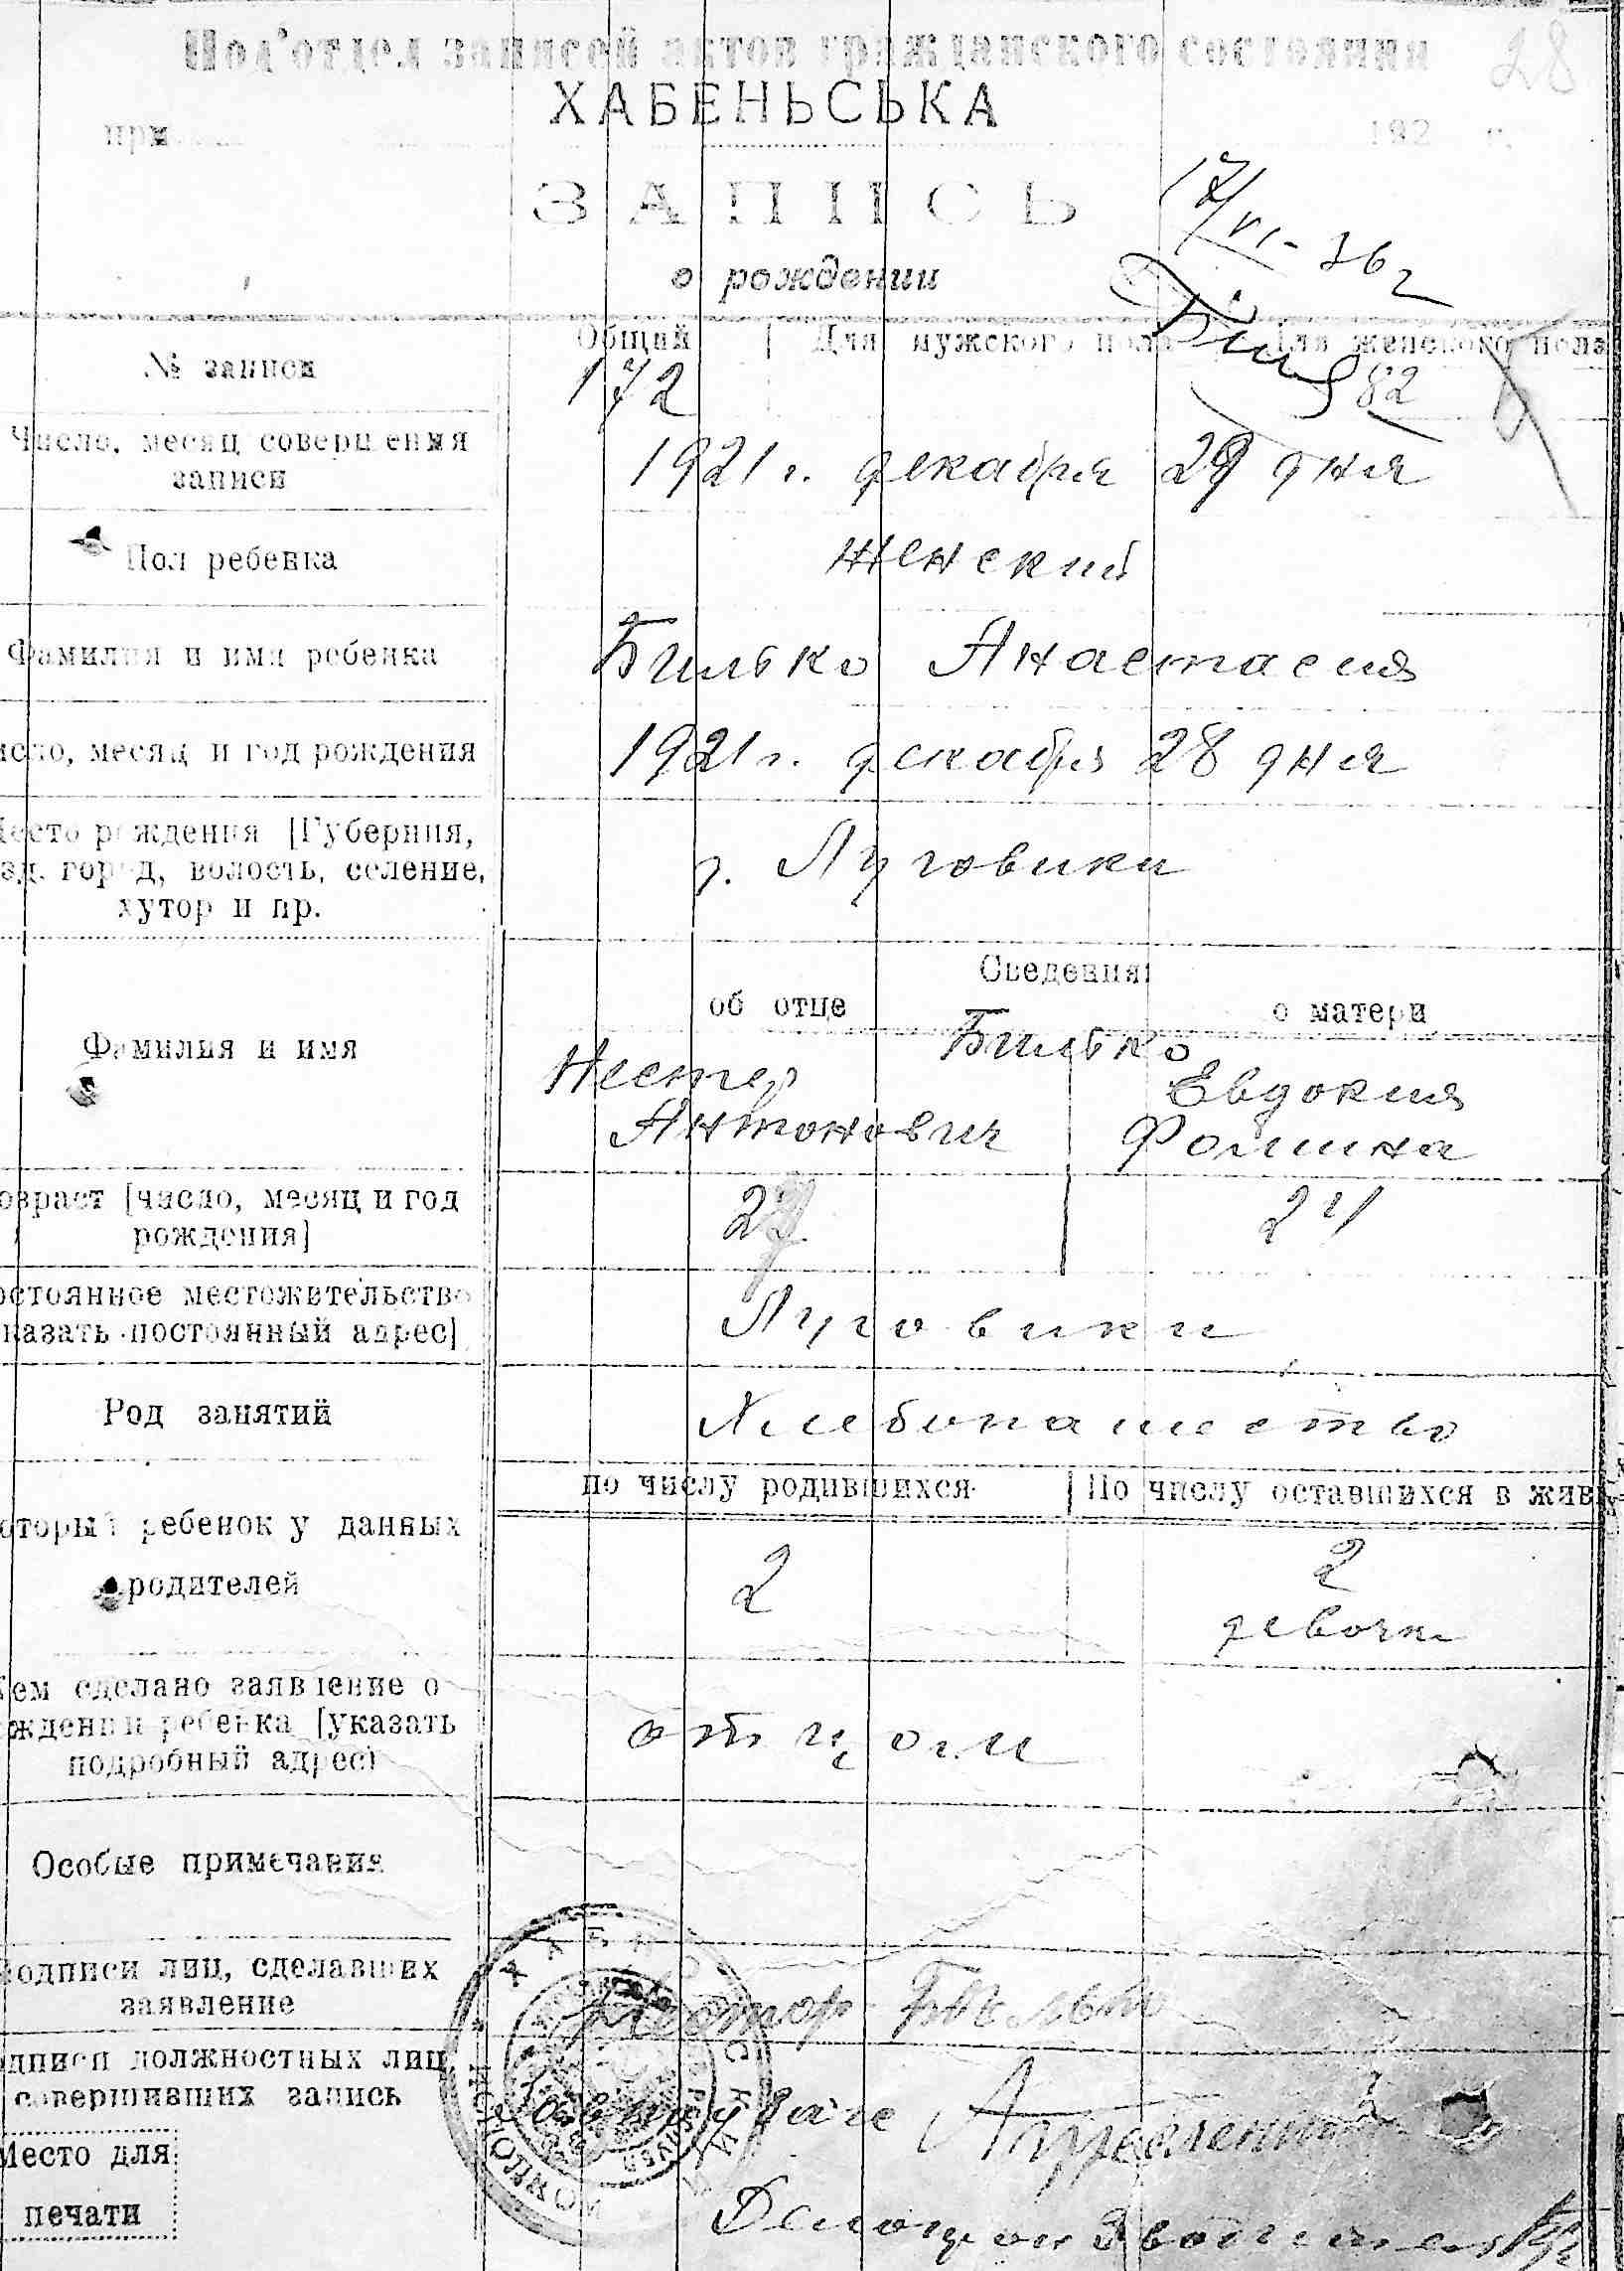 Под'отдел записей актов гражданского состояния
28
ХАБЕНЬСЬКА
при 192 г.
ЗАПИСЬ
17/VI-36 г
о рождении
№ записи
Общий | Для мужского пола | Для женского пола
172 82
Число, месяц совершения записи
1921 г. декабря 29 дня
Пол ребенка
женский
Фамилия и имя ребенка
Билько Анастасия
исло, месяц и год рождения
1921 г. декабря 28 дня
Место рождения [Губерния,
зд. город, волость, селение,
хутор и пр.
с. Луговики
Сведения:
об отце
о матери
Фамилия и имя
Билько
Нестер
Антонович
Евдокия
Фомина
озраст [число, месяц и год
рождения]
24
остоянное местожительство
казать постоянный адрес]
Луговики
Род занятий
Хлебопашество
по числу родившихся
По числу оставшихся в жив
оторый ребенок у данных
родителей
2
2
девочки
Кем сделано заявление о
ждении ребенка [указать
подробный адрес)
отцом
Особые примечания
Подписи лиц, сделавших
заявление
Нестор Билько
дписи должностных лиц,
совершивших запись
Место для
печати